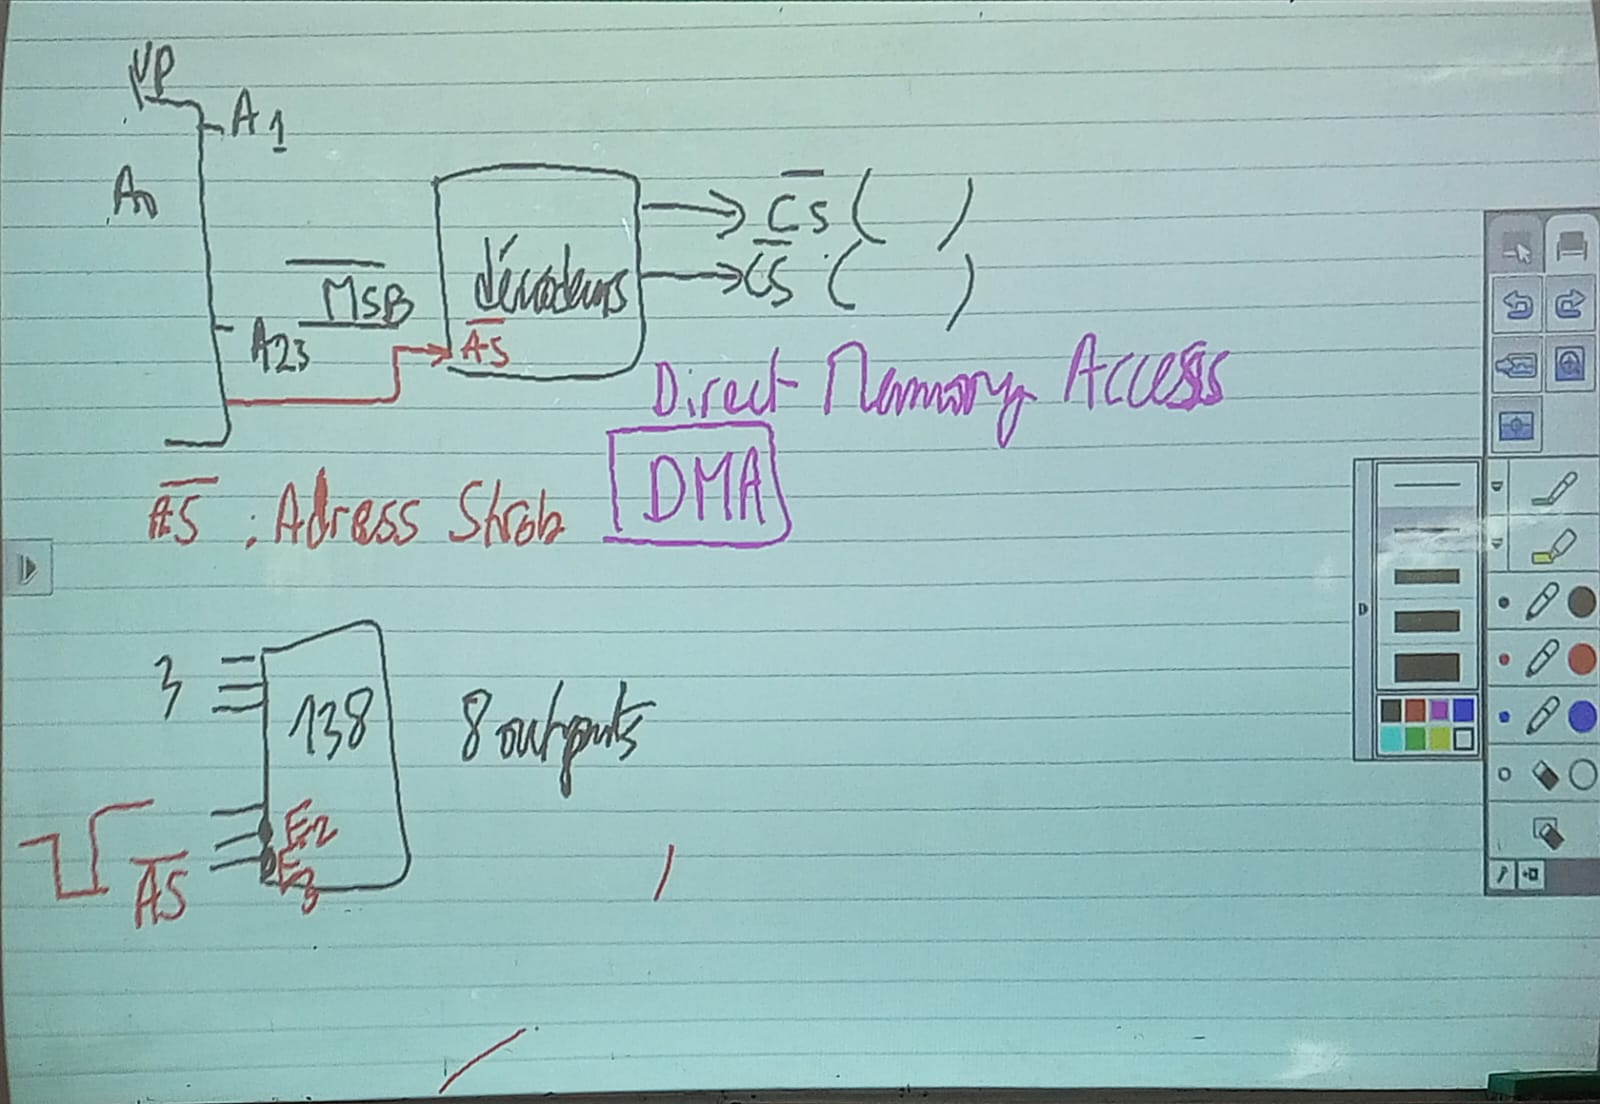 µP
A1
An
MSB
A23
décodeurs
AS
CS ( )
CS ( )
Direct Memory Access
DMA
AS : Adress Strob
3
138
8 outputs
E2
E3
AS